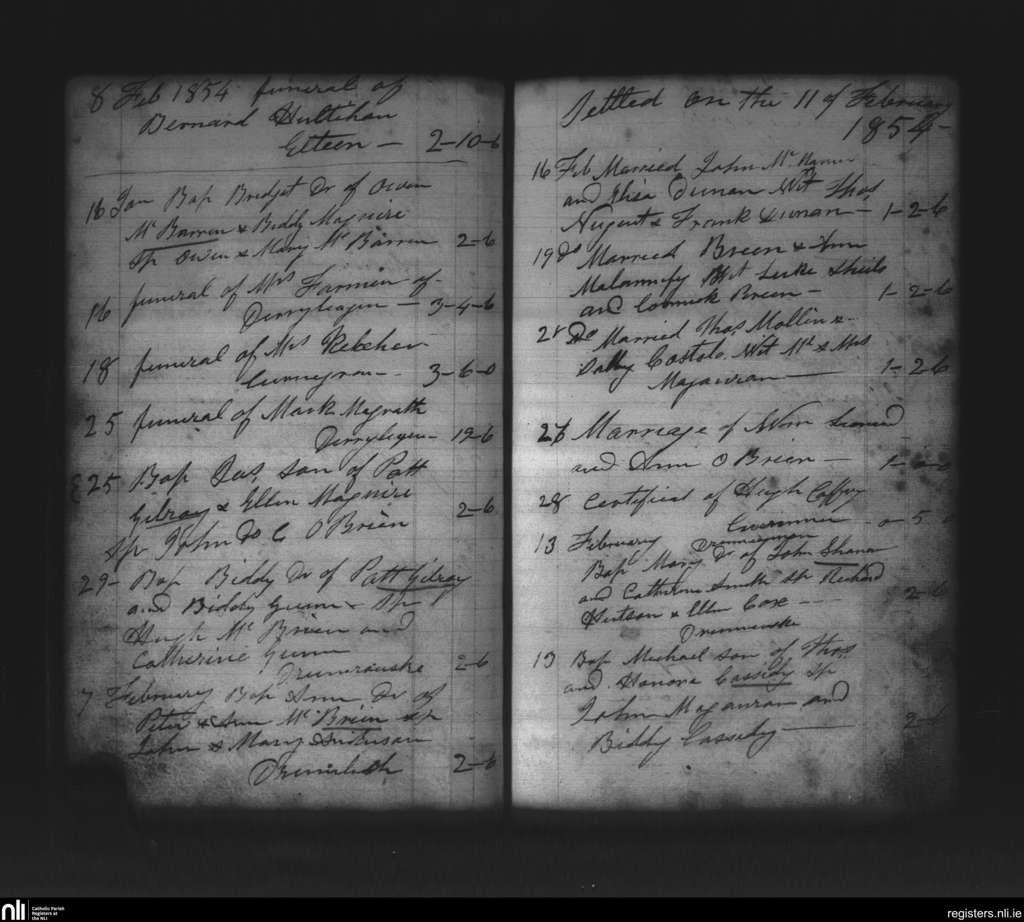 8 Feb 1854 funeral of
Bernard Hultihan
2-10-6
16 Jan Bap Bridget Dr of Owen
Mc Barron & Biddy Maguire
Sp Owen & Mary Mc Barron 2-6
16 funeral of Mrs Farmin of
3-4-6
18 funeral of Mrs
3-6-0
25 funeral of Mark Magrath
19-6
25 Bap Jas. son of Patt
Gilroy & Ellen Maguire
Sp John Do C O Brien 2-6
29- Bap Biddy Dr of Patt Gilroy
and Biddy Gunn Sp
Hugh Mc Brien and
Catherine Gunn
2-6
7 February Bap Ann Dr of
Peter & Ann Mc Brien Sp
John & Mary Anderson
2-6
Settled on the 11 of February
1854-
16 Feb Married John Mc
and Dunan Wit Thos
Nugent & Frank Dunan - 1-2-6
19 Do Married Breen & Ann
Wit Luke Shiels
and Cormick Breen - 1-2-6
Do Married Thos. Mollin &
Costolo. Wit Mr & Mrs
Magauran 1-2-6
Marriage of Wm
and Ann O Brien -
28 Certificat of Hugh Caffry
5
13 February
Bapt Mary Dr of John Shanan
and Catherine Smith Sp Richard
Hutson & Ellen Cox - 2-6
13 Bap Michael son of Thos
and Honora Cassidy Sp
John Magauran and
Biddy Cassidy 2-6
nli
Catholic Parish
Registers at
the NLI
registers.nli.ie